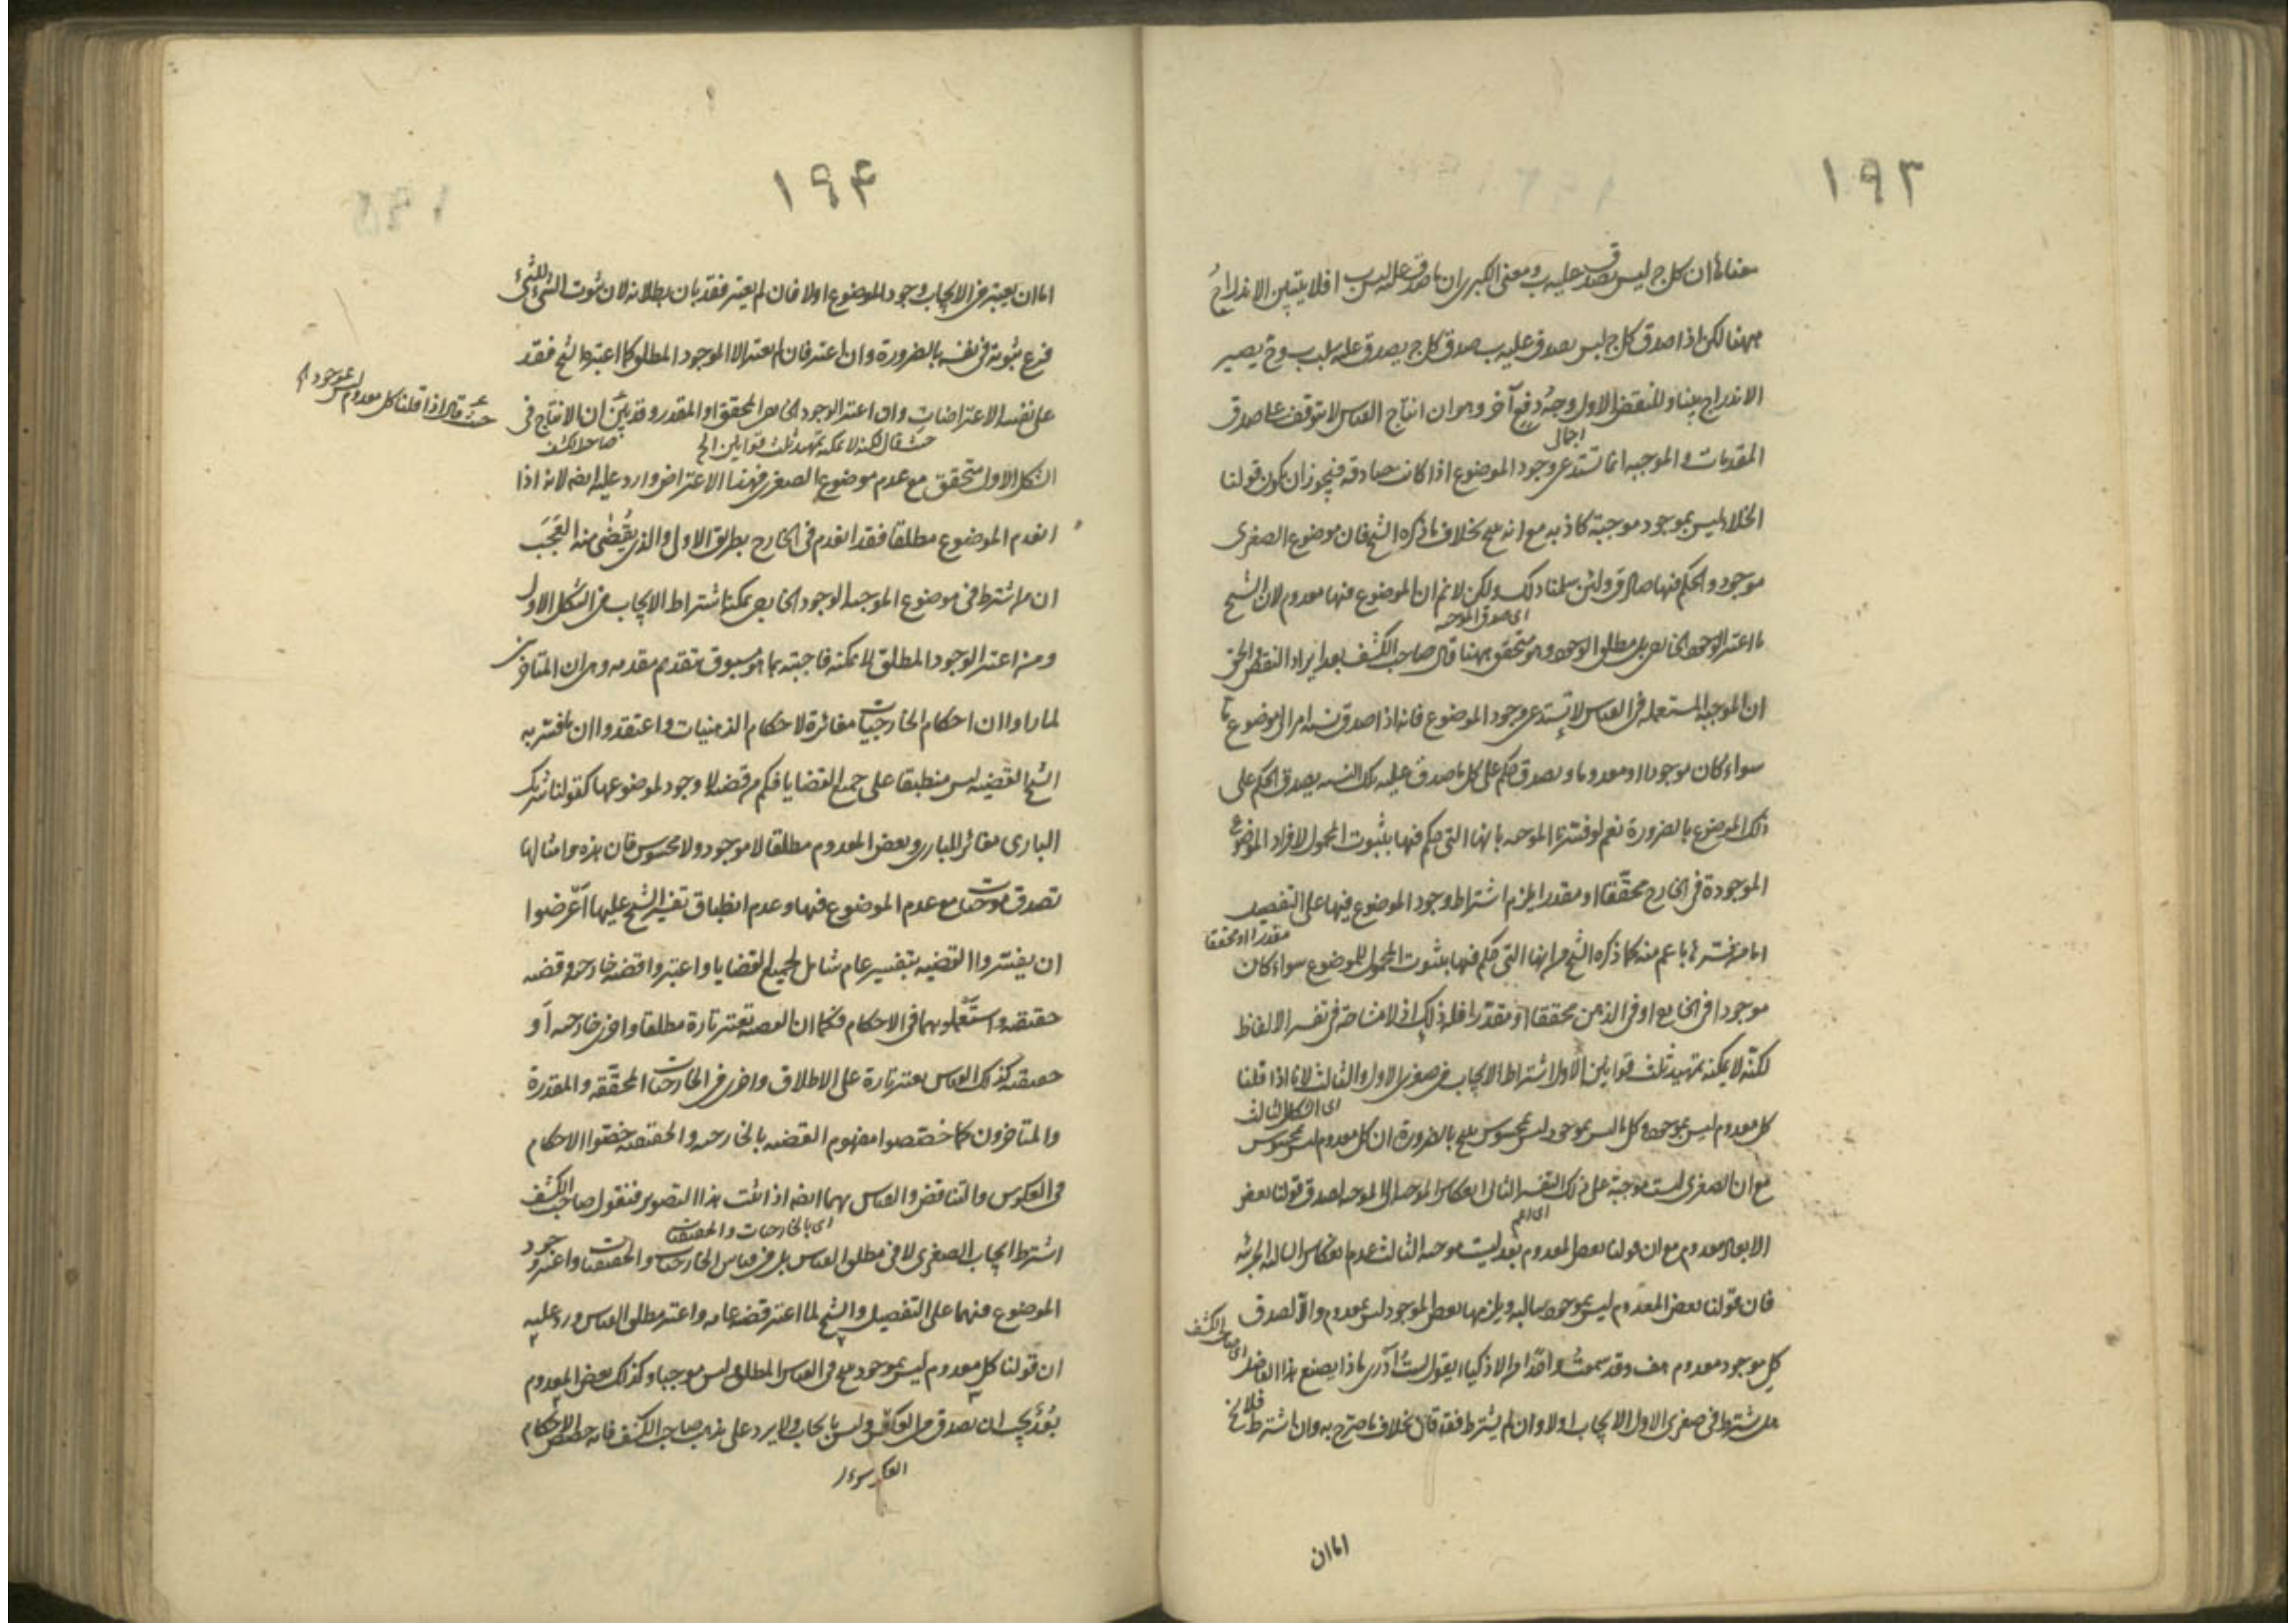 ١٩٣
معناه ان كل ج ليس يصدق عليه ب ومعنى الكبرى ان ما صدق عليه ليس ب افلا يتبين الاندراج
ههنا لكن اذا صدق كل ج ليس يصدق عليه ب صدق كل ج يصدق عليه سلب ب وح يصير
الاندراج بينا وللنقض الاول وجه دفع آخر وهو ان انتاج القياس لا يتوقف على صدق
اجمالى
المقدمات والموجبه انما تستدعى وجود الموضوع اذا كانت صادقه فيجوز ان يكون قولنا
الخلاء ليس بموجود موجبة كاذبه مع انه بخلاف ما ذكره الشيخ فان موضوع الصغرى
موجود والحكم فيها صادق ولئن سلمنا ذلك ولكن لانم ان الموضوع فيها معدوم لان الشيخ
اى صدق الموجبه
ما اعتبر الوجود الخارجى بل مطلق الوجود وهو متحقق ههنا قال صاحب الكشف بعد ايراد النقض الحق
ان الموجبه المستعمله فى القياس لا تستدعى وجود الموضوع فانه اذا صدق نسبة امر الى موضوع ما
سواء كان موجودا او معدوما ويصدق حكم على كل ما صدق عليه تلك النسبه يصدق الحكم على
ذلك الموضوع بالضرورة نعم لو فسرنا الموجبه بانها التى حكم فيها بثبوت المحمول لافراد الموضوع
الموجودة فى الخارج محققا او مقدرا يلزم اشتراط وجود الموضوع فيها على التفصيل
مقدرا او محققا
اما من فسرها باعم منه كما ذكره الشيخ من انها التى حكم فيها بثبوت المحمول للموضوع سواء كان
موجودا فى الخارج او فى الذهن محققا او مقدرا فله ذلك اذ لا مشاحة فى تفسير الالفاظ
لكنه لا يمكنه تمهيد ثلث قوانين الاول اشتراط الايجاب فى صغرى الاول والثالث لانا اذا قلنا
اى الشكل الثالث
كل معدوم ليس بموجود وكل ما ليس بموجود ليس بمحسوس ينتج بالضرورة ان كل معدوم ليس بمحسوس
مع ان الصغرى ليست موجبة على ذلك التفسير الثانى انعكاس الموجبه الى الموجبه لصدق قولنا بعض
اى اعم
الابعاد معدوم مع ان قولنا بعض المعدوم بعد ليست موجبه الثالث عدم انعكاس السالبه الجزئيه
فان قولنا بعض المعدوم ليس بموجود سالبه ويلزمها بعض الموجود ليس بمعدوم والا لصدق
كل موجود معدوم هف وقد سمعت واحدا من الاذكياء يقول لست ادرى ماذا يصنع هذا الفاضل
اى صاحب الكشف
هل شترط فى صغرى الاول الايجاب اولا وان لم يشترط فقد قال بخلاف ما صرح به وان اشترط فلا يخ
اما ان
١٩۴
اما ان يعتبر فى الايجاب وجود الموضوع اولا فان لم يعتبر فقد بان بطلانه لان ثبوت الشىء للشىء
فرع ثبوته فى نفسه بالضرورة وان اعتبر فان لم يعتبر الا الموجود المطلق كما اعتبره الشيخ فقد
على نفسه الاعتراضات وان اعتبر الوجود الخارجى المحقق او المقدر وقد بين ان الانتاج فى
حيث قال اذا قلنا كل معدوم ليس بموجود
حيث قال لكنه لا يمكنه تمهيد ثلث قوانين الخ
صاحب الكشف
الشكل الاول متحقق مع عدم موضوع الصغرى فهذا الاعتراض وارد عليه ايضا لانه اذا
انعدم الموضوع مطلقا فقد انعدم فى الخارج بطريق الاولى والذى يقضى منه العجب
ان من اشترط فى موضوع الموجبه الوجود الخارجى يمكنه اشتراط الايجاب فى الشكل الاول
ومن اعتبر الوجود المطلق لا يمكنه فاجبته بما هو مسبوق بتقديم مقدمه وهى ان المتاخرين
لما راوا ان احكام الخارجيات مغائرة لاحكام الذهنيات واعتقدوا ان ما فسر به
الشيخ القضيه ليس منطبقا على جميع القضايا فكم من قضيه لا وجود لموضوعها كقولنا شريك
البارى مغائر للبارى وبعض المعدوم مطلقا لا موجود ولا محسوس فان هذه وامثالها
تصدق موجبات مع عدم الموضوع فيها وعدم انطباق تفسير الشيخ عليها اعرضوا
ان يفسروا القضيه بتفسير عام شامل لجميع القضايا واعتبروا قضيه خارجيه وقضيه
حقيقيه واستعملوهما فى الاحكام فكما ان القضيه تعتبر تارة مطلقا واخرى خارجيه او
حقيقيه كذلك القياس يعتبر تارة على الاطلاق واخرى فى الخارجيات المحققه والمقدرة
والمتاخرون كما خصصوا مفهوم القضيه بالخارجيه والحقيقيه خصصوا الاحكام
فى العكوس والتناقض والقياس بهما ايضا اذا ثبت هذا التصوير فنقول صاحب الكشف
اى بالخارجيات والحقيقيات
اشترط ايجاب الصغرى لا فى مطلق القياس بل فى قياس الخارجيات والحقيقيات واعتبر وجود
الموضوع فيهما على التفصيل والشيخ لما اعتبر قضيه عامه واعتبر مطلق القياس ورد عليه
ان قولنا كل معدوم ليس بموجود ينتج فى القياس المطلق وليس موجبا وكذلك بعض المعدوم
بعد يجب ان يصدق فى العكس وليس بايجاب ولا يرد على مذهب صاحب الكشف فانه خصص الاحكام